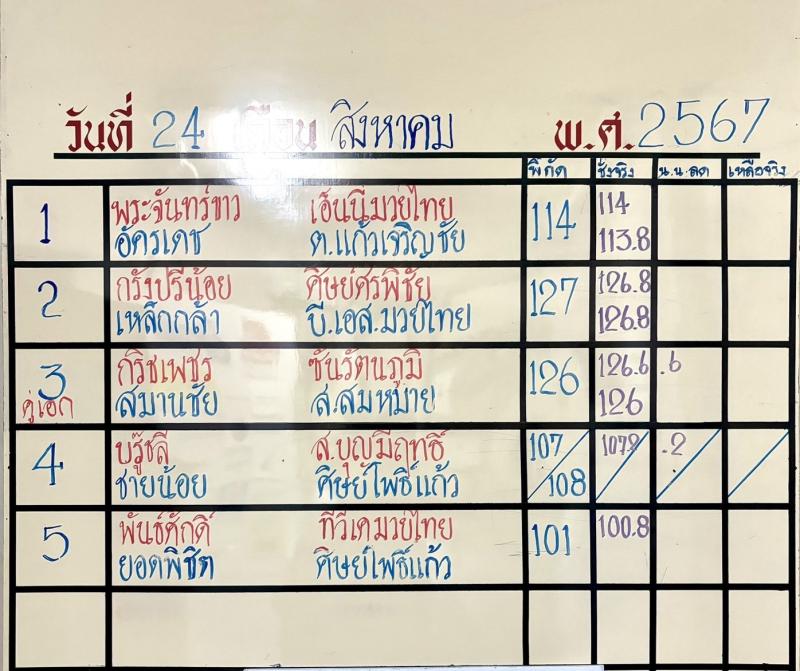 วันที่ 24 เดือน สิงหาคม พ.ศ. 2567
พิกัด ชั่งจริง น.น.ลด เหลือจริง
1 พระจันทร์ขาว เฮ็นนี่มวยไทย 114 114
อัครเดช ต.แก้วเจริญชัย 113.8
2 กรังปรีน้อย ศิษย์ศรพิชัย 127 126.8
เหล็กกล้า บี.เอส.มวยไทย 126.8
3 กริชเพชร ซันรัตนภูมิ 126 126.6 .6
คู่เอก สมานชัย ส.สมหมาย 126
4 บรู๊ซลี ส.บุญมีฤทธิ์ 107 107.2 .2
ชายน้อย ศิษย์โพธิ์แก้ว 108
5 พันธ์ศักดิ์ ทีวีเคมวยไทย 101 100.8
ยอดพิชิต ศิษย์โพธิ์แก้ว